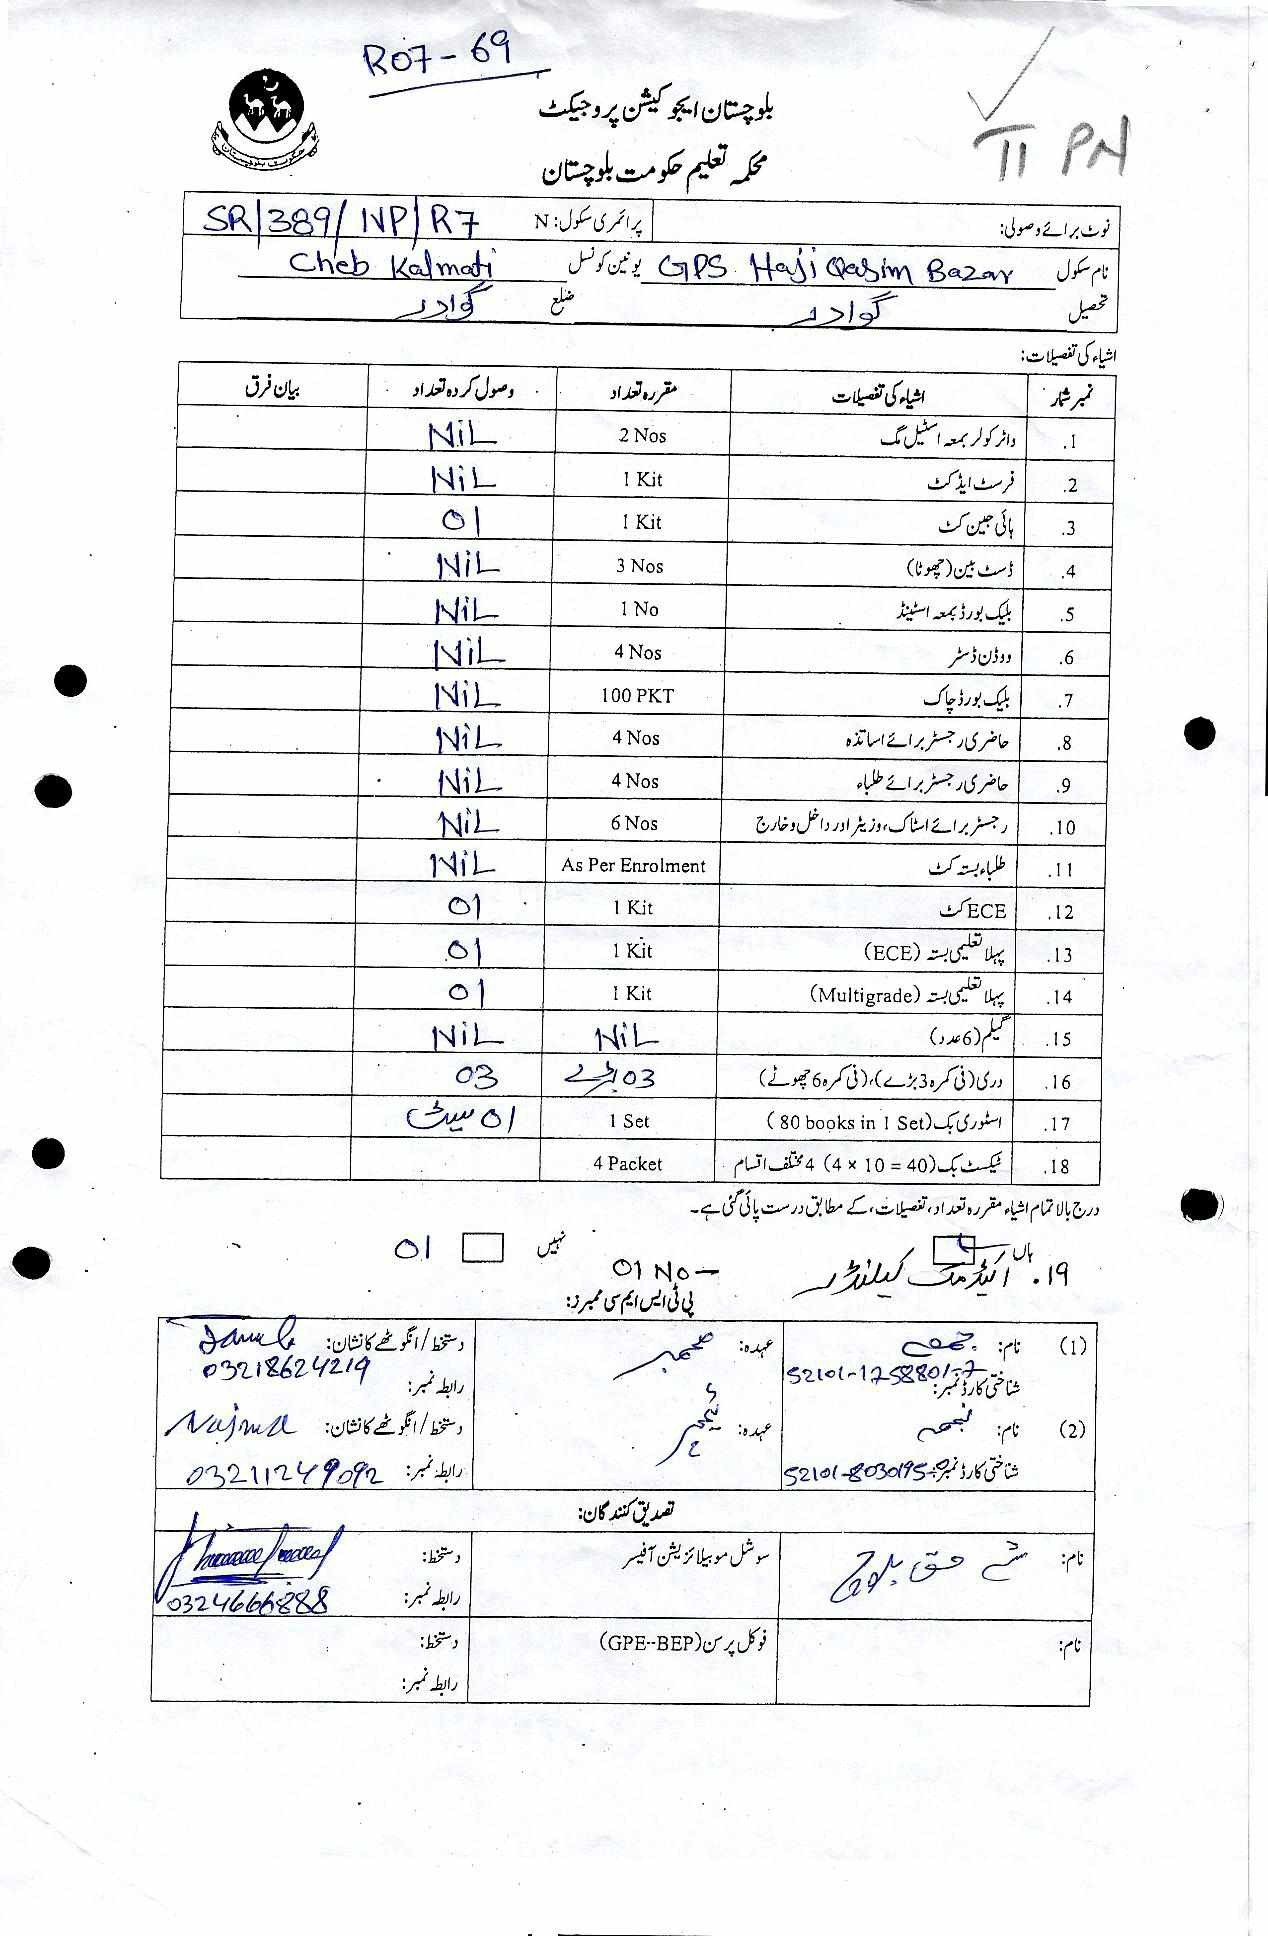 R07-69
بلوچستان ایجوکیشن پروجیکٹ
TI PN
محکمہ تعلیم حکومت بلوچستان
نوٹ برائے وصولی: پرائمری سکول: N SR/389/NP/R7
نام سکول GPS Haji Qasim Bazar یونین کونسل Cheb Kalmati
تحصیل گوادر ضلع گوادر
اشیاء کی تفصیلات:
نمبر شمار اشیاء کی تفصیلات مقررہ تعداد وصول کردہ تعداد بیان فرق
.1 واٹر کولر بمعہ اسٹیل مگ 2 Nos NiL
.2 فرسٹ ایڈ کٹ 1 Kit NiL
.3 ہائی جین کٹ 1 Kit 01
.4 ڈسٹ بین (چھوٹا) 3 Nos NiL
.5 بلیک بورڈ بمعہ اسٹینڈ 1 No NiL
.6 ووڈن ڈسٹر 4 Nos NiL
.7 بلیک بورڈ چاک 100 PKT NiL
.8 حاضری رجسٹر برائے اساتذہ 4 Nos NiL
.9 حاضری رجسٹر برائے طلباء 4 Nos NiL
.10 رجسٹر برائے اسٹاک، وزیٹر اور داخل و خارج 6 Nos NiL
.11 طلباء بستہ کٹ As Per Enrolment NiL
.12 ECE کٹ 1 Kit 01
.13 پہلا تعلیمی بستہ (ECE) 1 Kit 01
.14 پہلا تعلیمی بستہ (Multigrade) 1 Kit 01
.15 گیلم (6 عدد) NiL NiL
.16 دری (فی کمرہ 3 بڑے)، (فی کمرہ 6 چھوٹے) 03 بڑے 03
.17 اسٹوری بک (80 books in 1 Set) 1 Set 01 سیٹ
.18 ٹیکسٹ بک (4 × 10 = 40) 4 مختلف اقسام 4 Packet
درج بالا تمام اشیاء مقررہ تعداد، تفصیلات، کے مطابق درست پائی گئی ہے۔
ہاں نہیں 01
۱۹. کیلنڈر 01 No—
پی ٹی ایس ایم سی ممبرز:
(1) نام: عہدہ: ممبر دستخط/انگوٹھے کا نشان:
شناختی کارڈ نمبر: 52101-1258801-7 رابطہ نمبر: 03218624219
(2) نام: نجمہ عہدہ: دستخط/انگوٹھے کا نشان: Najma
شناختی کارڈ نمبر: رابطہ نمبر: 03211249092
تصدیق کنندگان:
نام: سوشل موبیلائزیشن آفیسر دستخط:
رابطہ نمبر: 0324666888
نام: فوکل پرسن (GPE--BEP) دستخط:
رابطہ نمبر: